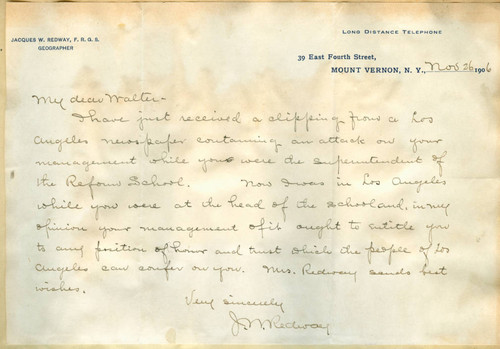 JACQUES W. REDWAY, F. R. G. S.
GEOGRAPHER
LONG DISTANCE TELEPHONE
39 East Fourth Street,
MOUNT VERNON, N. Y., Nov 26 1906
My dear Walter-
I have just received a clipping from a Los
Angeles newspaper containing an attack on your
management while you were the superintendent of
the Reform School. Now I was in Los Angeles
while you were at the head of the school and, in my
opinion your management of it ought to entitle you
to any position of honor and trust which the people of Los
Angeles can confer on you. Mrs. Redway sends best
wishes.
Very sincerely
J. W. Redway